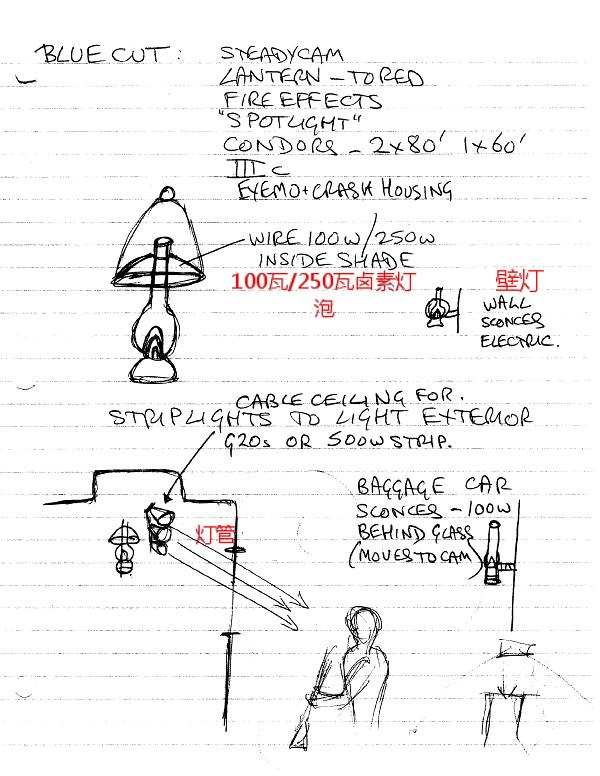 BLUE CUT :
STEADYCAM
LANTERN - TO RED
FIRE EFFECTS
"SPOTLIGHT"
CONDORS - 2x80' 1x60'
III C
EYEMO + CRASH HOUSING
WIRE 100W/250W
INSIDE SHADE
100瓦/250瓦卤素灯
泡
壁灯
WALL
SCONCES
ELECTRIC.
CABLE CEILING FOR.
STRIPLIGHTS TO LIGHT EXTERIOR
G20s OR 500W STRIP.
灯管
BAGGAGE CAR
SCONCES - 100W
BEHIND GLASS
(MOVES TO CAM)